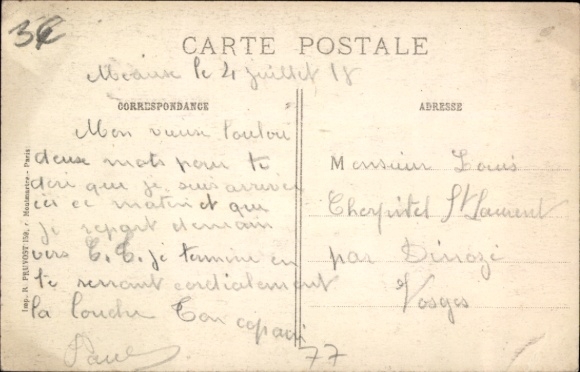 3€
CARTE POSTALE
Meaux le 4 juillet 18
CORRESPONDANCE
Mon vieux Loulou
deux mots pour te
dire que je suis arrivée
ici ce matin et que
je repart demain
vers E. E. je termine en
te serrant cordialement
la louche Ton copain
Paul
77
ADRESSE
Monsieur Louis
Cherpitel St Laurent
par Dinozé
Vosges
Imp. R. PRUVOST 159, r. Montmartre - Paris